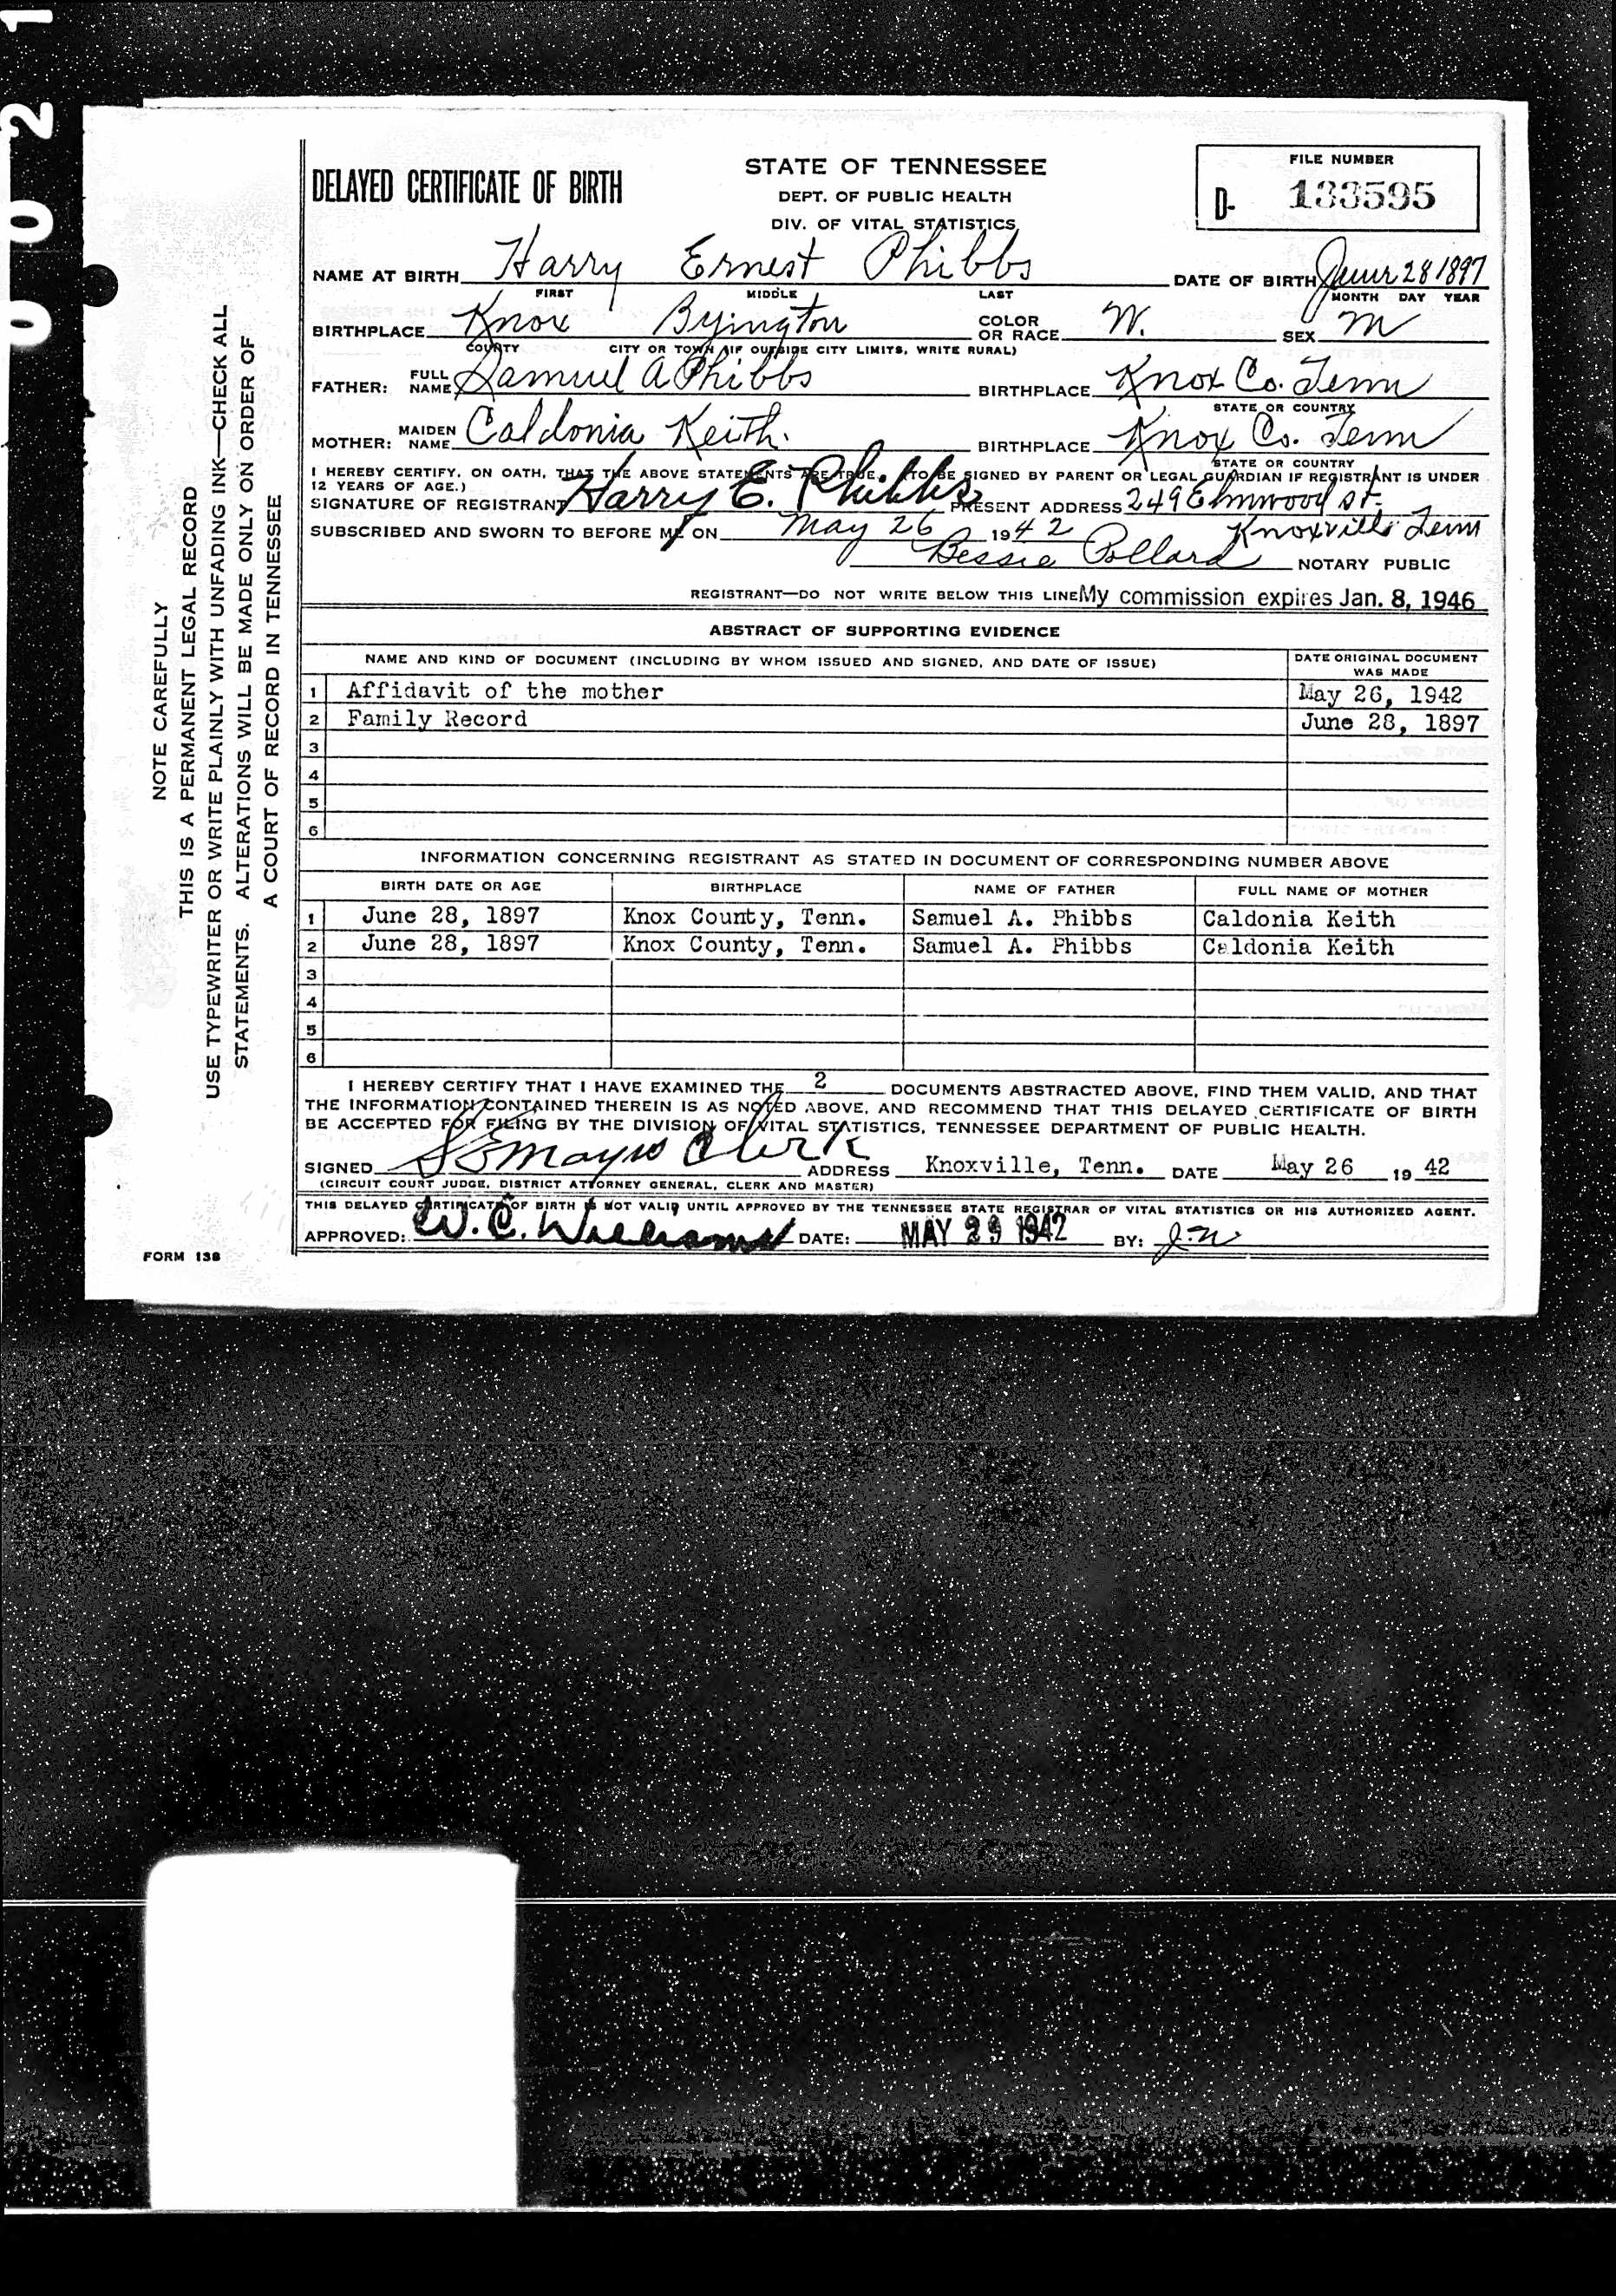 0021
NOTE CAREFULLY
THIS IS A PERMANENT LEGAL RECORD
USE TYPEWRITER OR WRITE PLAINLY WITH UNFADING INK—CHECK ALL
STATEMENTS. ALTERATIONS WILL BE MADE ONLY ON ORDER OF
A COURT OF RECORD IN TENNESSEE
DELAYED CERTIFICATE OF BIRTH
STATE OF TENNESSEE
DEPT. OF PUBLIC HEALTH
DIV. OF VITAL STATISTICS
FILE NUMBER
D- 133595
NAME AT BIRTH Harry Ernest Phibbs DATE OF BIRTH June 28 1897
FIRST MIDDLE LAST MONTH DAY YEAR
BIRTHPLACE Knox Byington COLOR OR RACE W. SEX M
COUNTY CITY OR TOWN (IF OUTSIDE CITY LIMITS, WRITE RURAL)
FATHER: FULL NAME Samuel A Phibbs BIRTHPLACE Knox Co. Tenn
STATE OR COUNTRY
MOTHER: MAIDEN NAME Caldonia Keith. BIRTHPLACE Knox Co. Tenn
STATE OR COUNTRY
I HEREBY CERTIFY, ON OATH, THAT THE ABOVE STATEMENTS ARE TRUE. (TO BE SIGNED BY PARENT OR LEGAL GUARDIAN IF REGISTRANT IS UNDER
12 YEARS OF AGE.)
SIGNATURE OF REGISTRANT Harry E. Phibbs PRESENT ADDRESS 249 Elmwood St.
SUBSCRIBED AND SWORN TO BEFORE ME ON May 26 1942 Knoxville Tenn
Bessie Pollard NOTARY PUBLIC
REGISTRANT—DO NOT WRITE BELOW THIS LINE My commission expires Jan. 8, 1946
ABSTRACT OF SUPPORTING EVIDENCE
NAME AND KIND OF DOCUMENT (INCLUDING BY WHOM ISSUED AND SIGNED, AND DATE OF ISSUE) DATE ORIGINAL DOCUMENT WAS MADE
1 Affidavit of the mother May 26, 1942
2 Family Record June 28, 1897
3
4
5
6
INFORMATION CONCERNING REGISTRANT AS STATED IN DOCUMENT OF CORRESPONDING NUMBER ABOVE
BIRTH DATE OR AGE BIRTHPLACE NAME OF FATHER FULL NAME OF MOTHER
1 June 28, 1897 Knox County, Tenn. Samuel A. Phibbs Caldonia Keith
2 June 28, 1897 Knox County, Tenn. Samuel A. Phibbs Caldonia Keith
3
4
5
6
I HEREBY CERTIFY THAT I HAVE EXAMINED THE 2 DOCUMENTS ABSTRACTED ABOVE, FIND THEM VALID, AND THAT
THE INFORMATION CONTAINED THEREIN IS AS NOTED ABOVE, AND RECOMMEND THAT THIS DELAYED CERTIFICATE OF BIRTH
BE ACCEPTED FOR FILING BY THE DIVISION OF VITAL STATISTICS, TENNESSEE DEPARTMENT OF PUBLIC HEALTH.
SIGNED Clerk ADDRESS Knoxville, Tenn. DATE May 26 19 42
(CIRCUIT COURT JUDGE, DISTRICT ATTORNEY GENERAL, CLERK AND MASTER)
THIS DELAYED CERTIFICATE OF BIRTH IS NOT VALID UNTIL APPROVED BY THE TENNESSEE STATE REGISTRAR OF VITAL STATISTICS OR HIS AUTHORIZED AGENT.
APPROVED: W. C. Williams DATE: MAY 29 1942 BY:
FORM 138